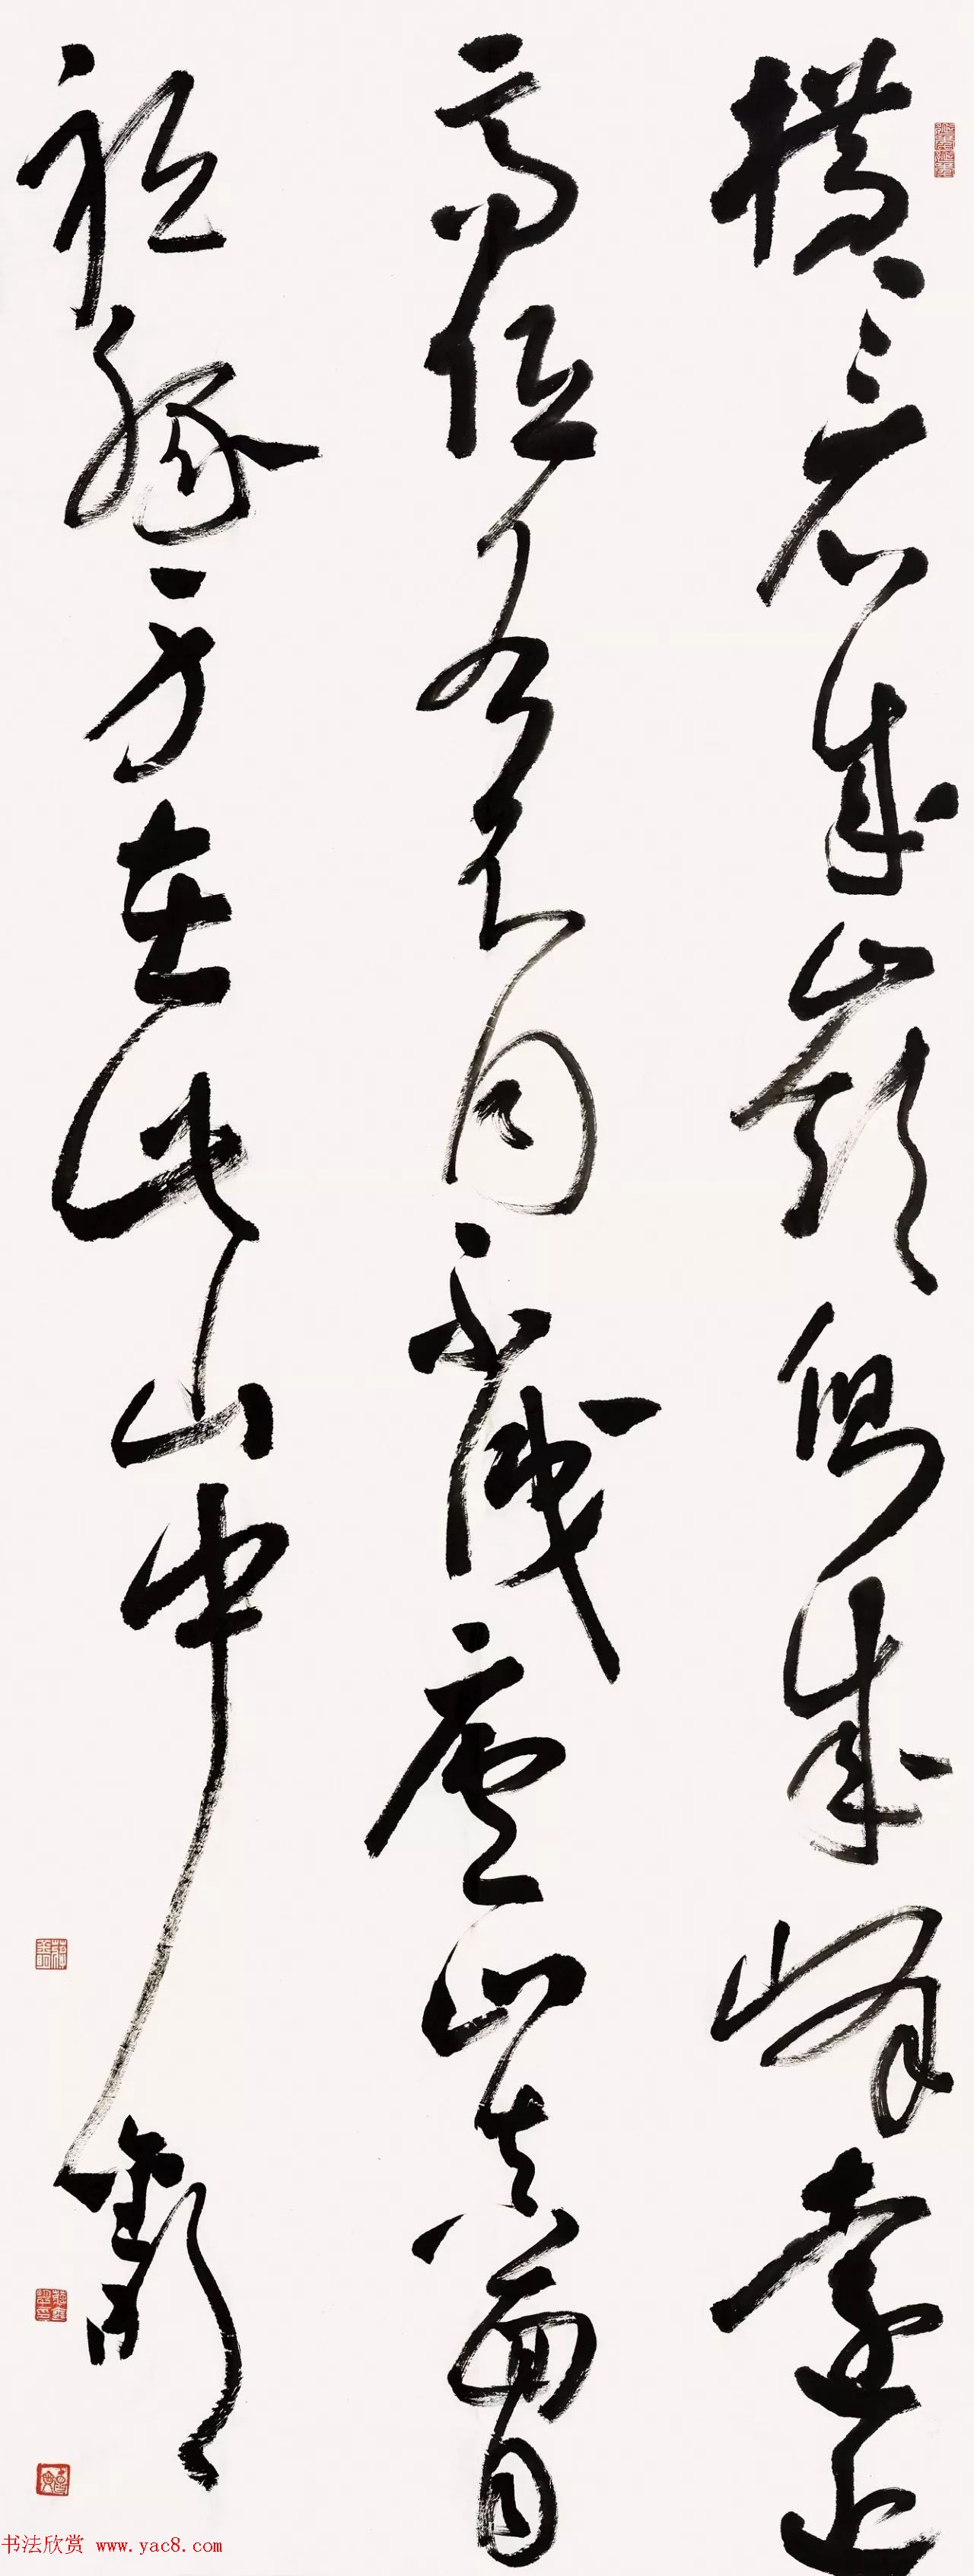 橫看成嶺側成峰遠近
高低各不同不識廬山真面目
祇緣身在此山中
书法欣赏 www.yac8.com